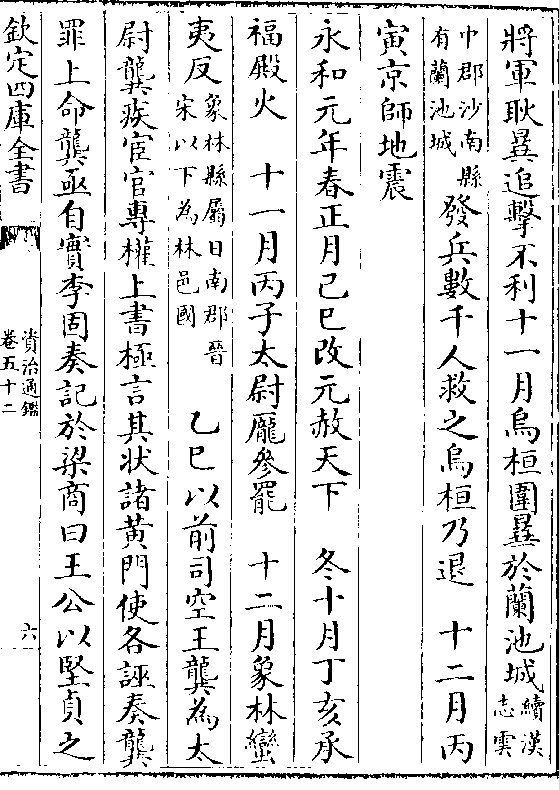 將軍耿曅追擊不利十一月烏桓圍曅於蘭池城續漢志雲
中郡沙南縣有蘭池城發兵數千人救之烏桓乃退　十二月丙
寅京師地震
永和元年春正月己巳改元赦天下　冬十月丁亥承
福殿火　十一月丙子太尉龐參罷　十二月象林蠻
夷反象林縣屬日南郡晉宋以下為林邑國　乙巳以前司空王龔為太
尉龔疾宦官專權上書極言其狀諸黃門使各誣奏龔
罪上命龔亟自實李固奏記於梁商曰王公以堅貞之
欽定四庫全書
資治通鑑
卷五十二
六